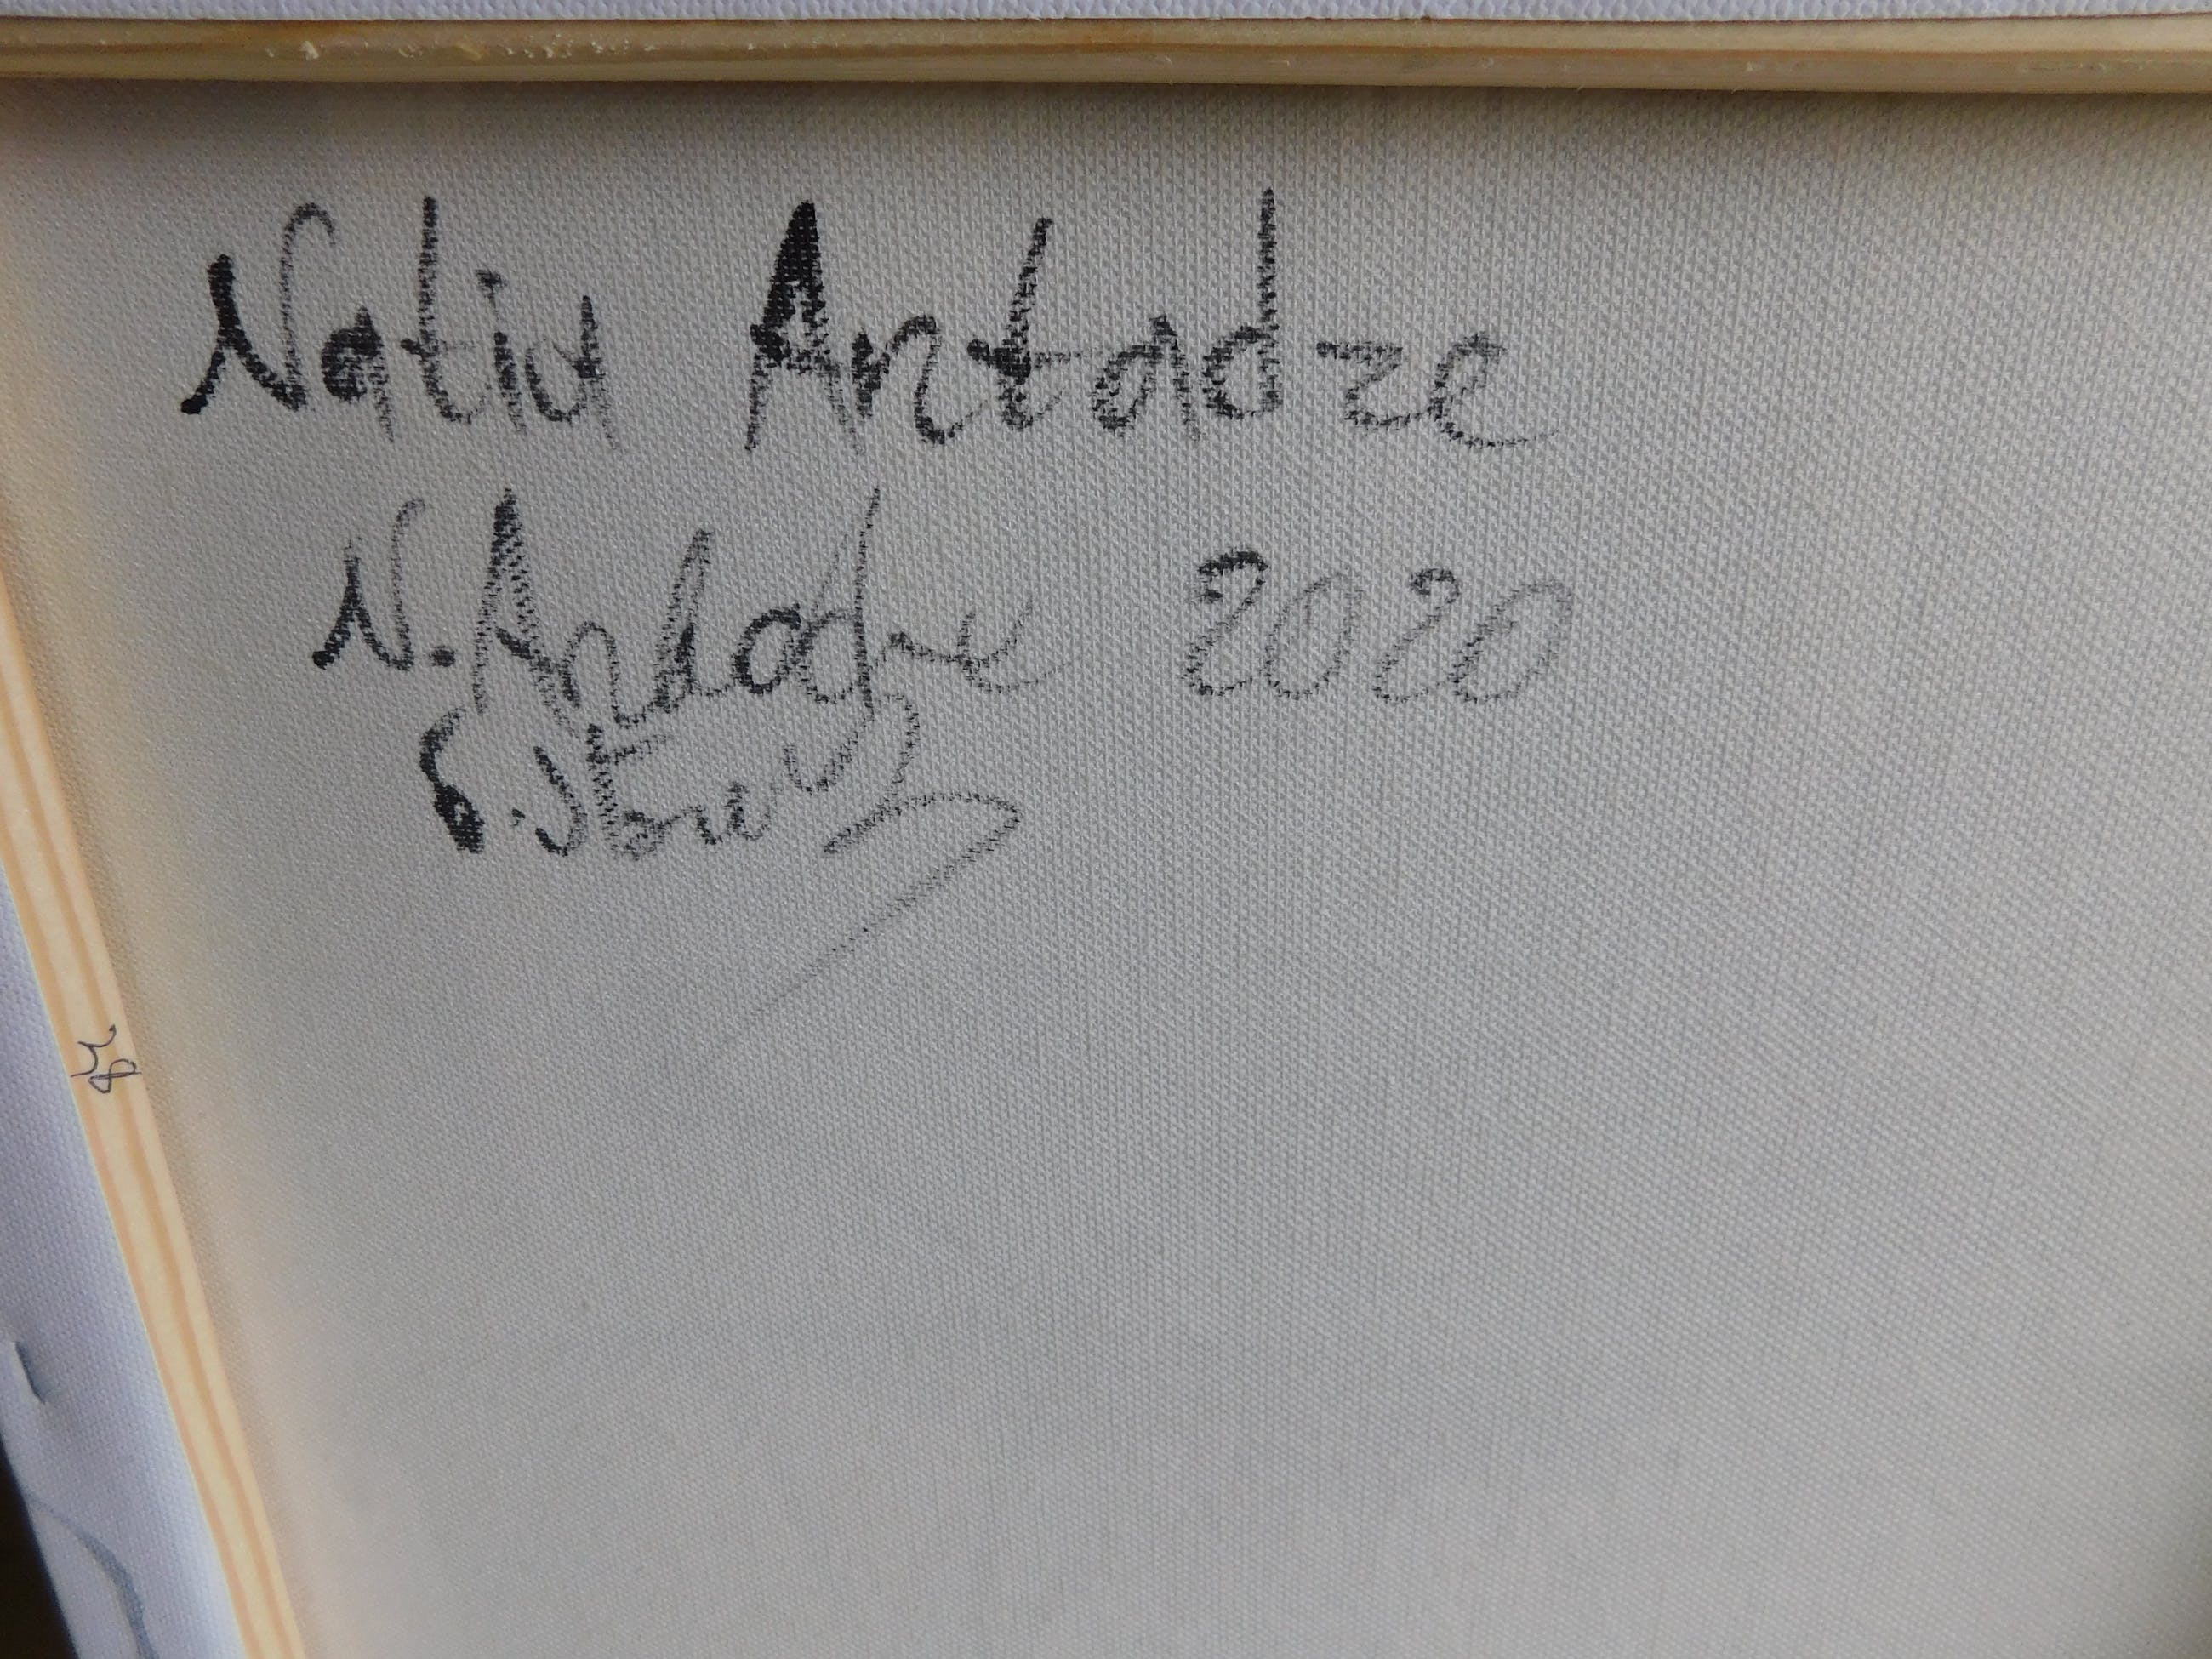 Natia Antadze
N. Antadze 2020